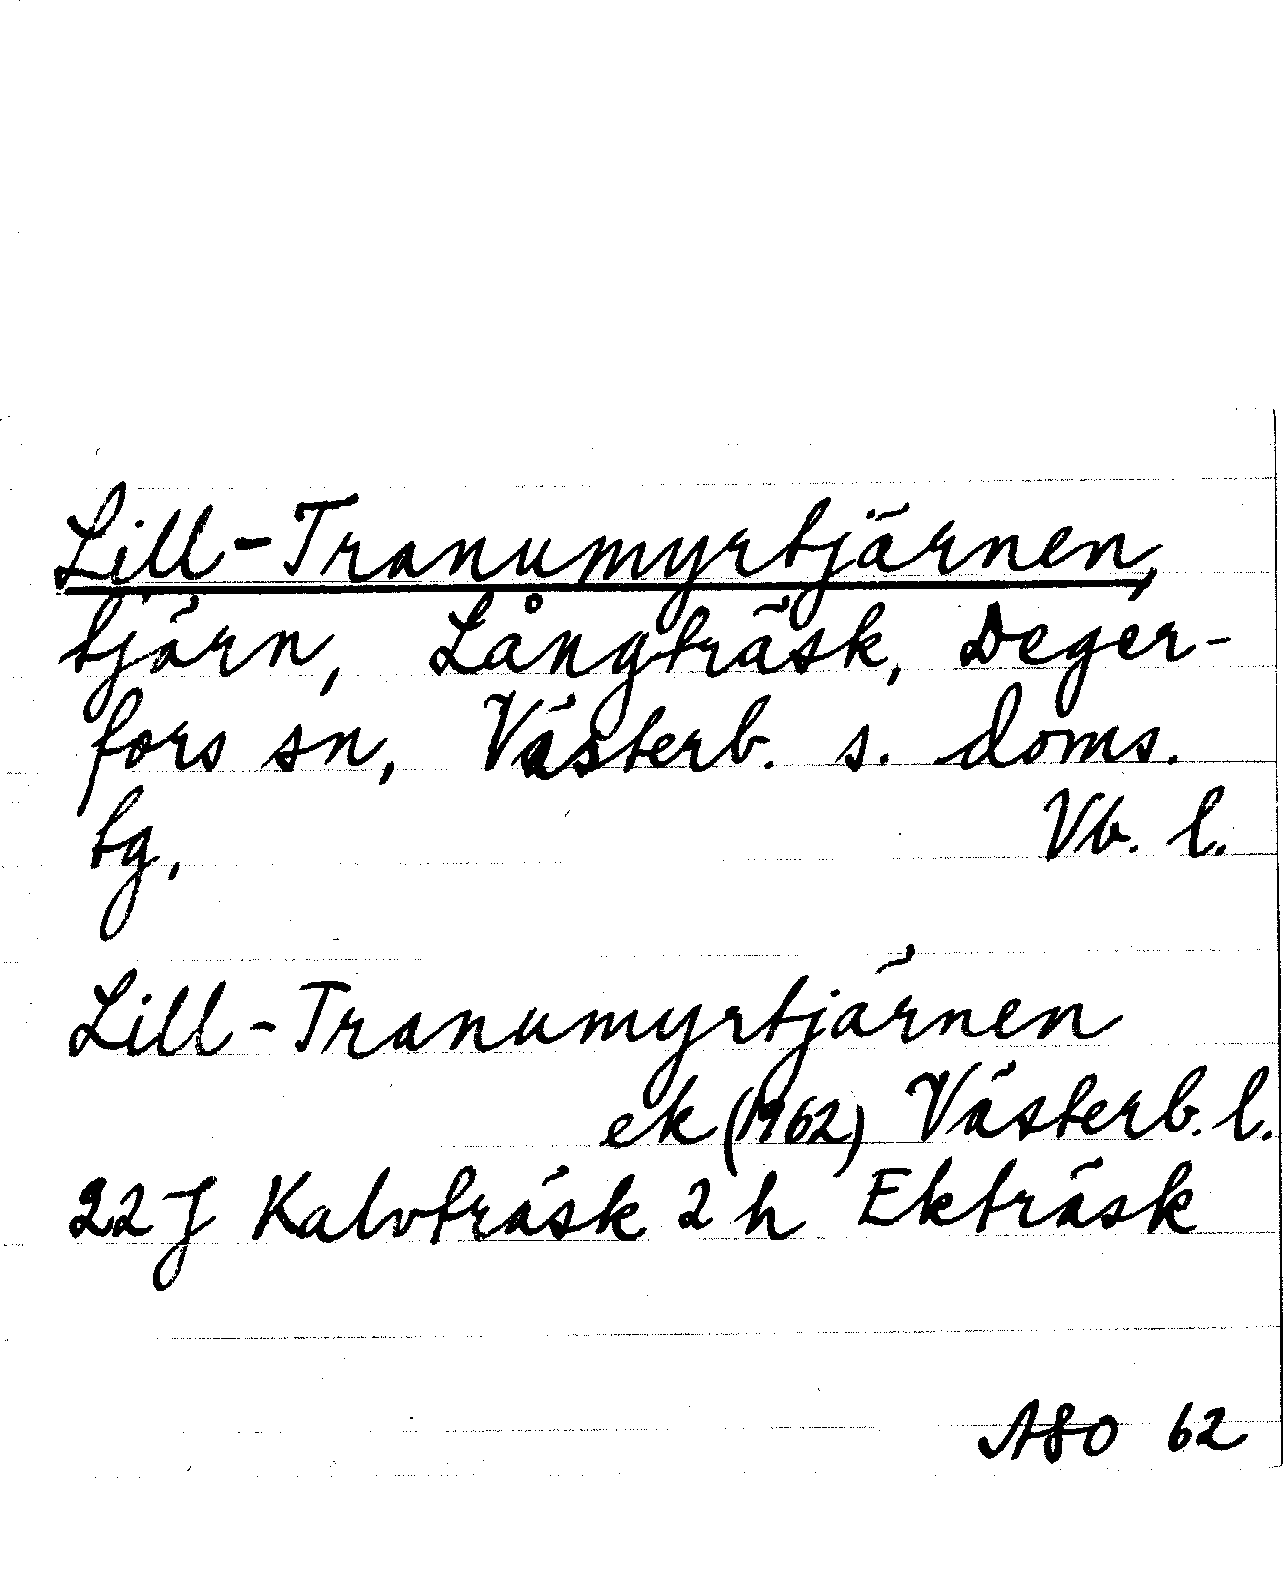 Lill-Tranumyrtjärnen,
tjärn, Långträsk, Deger-
fors sn, Västerb. s. doms.
tg, Vb. l.
Lill-Tranumyrtjärnen
ek (1962) Västerb. l.
22 J Kalvträsk 2 h Ekträsk
ASO 62